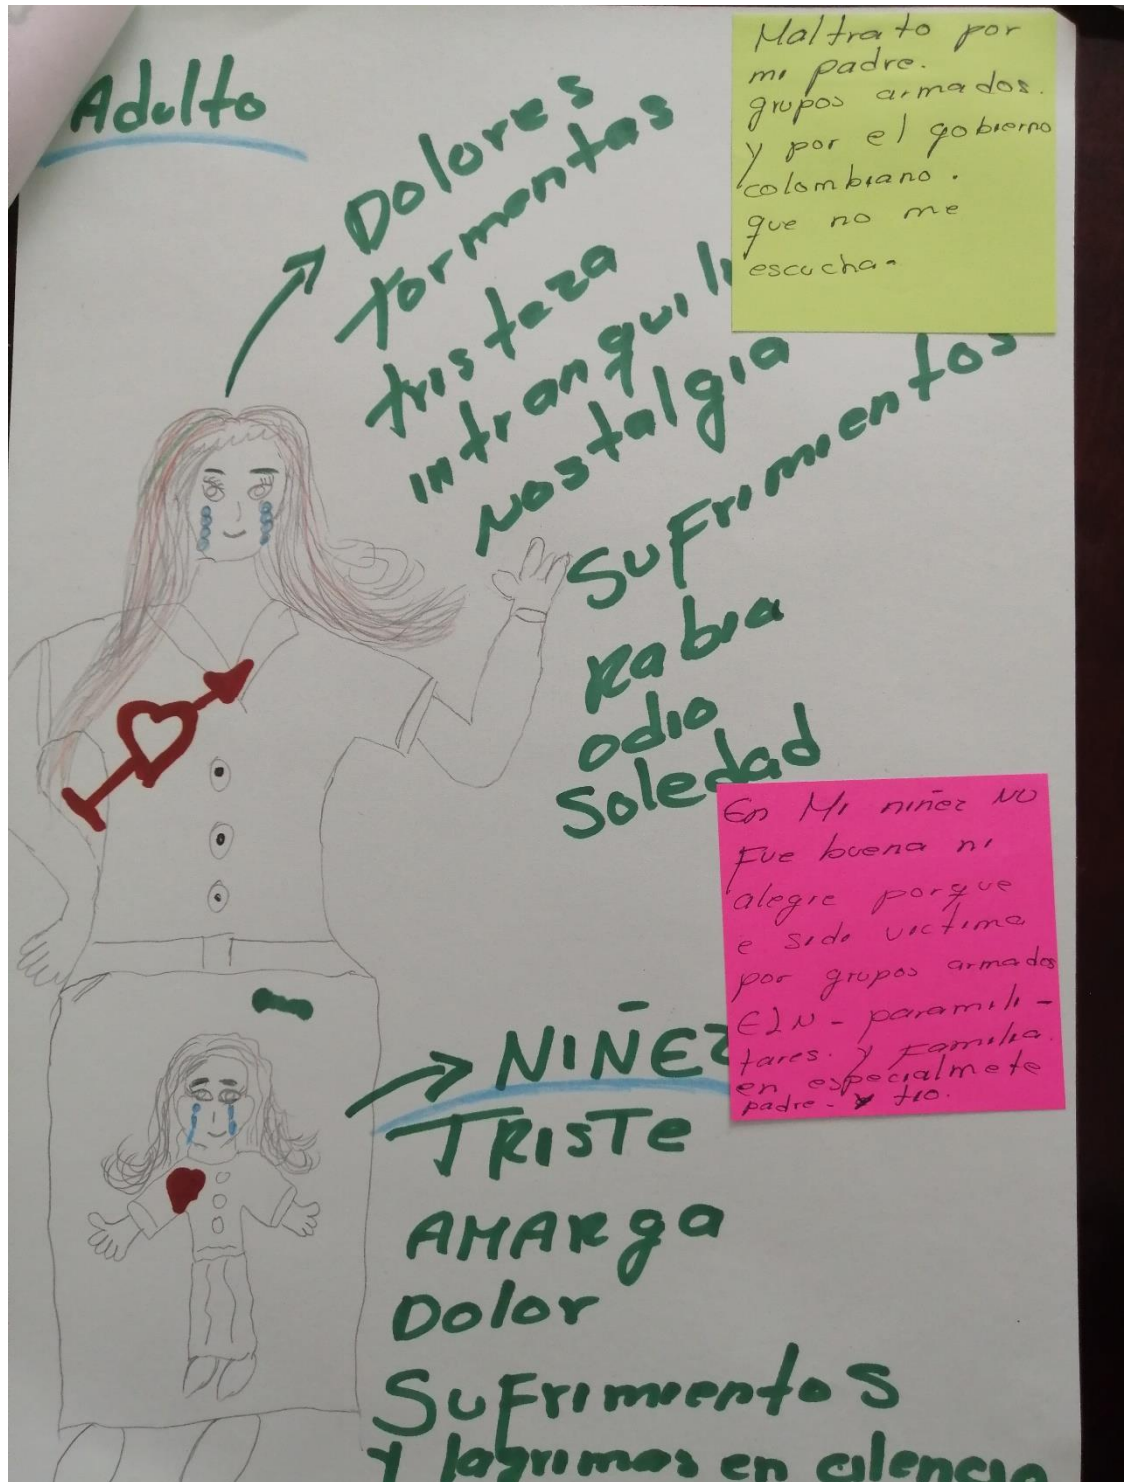 Adulto
Dolores
tormentas
tristeza
intranquili
Nostalgia
Sufrimientos
Rabia
odio
Soledad
Maltrato por
mi padre.
grupos armados.
y por el gobierno
colombiano.
que no me
escucha.
En Mi niñez NO
Fue buena ni
alegre porque
e sido victima
por grupos armados
ELN - paramili-
tares. y Familia.
en especialmete
padre - y tio.
NIÑEZ
TRISTE
AMARga
Dolor
SuFrimientos
y lagrimas en cilencio